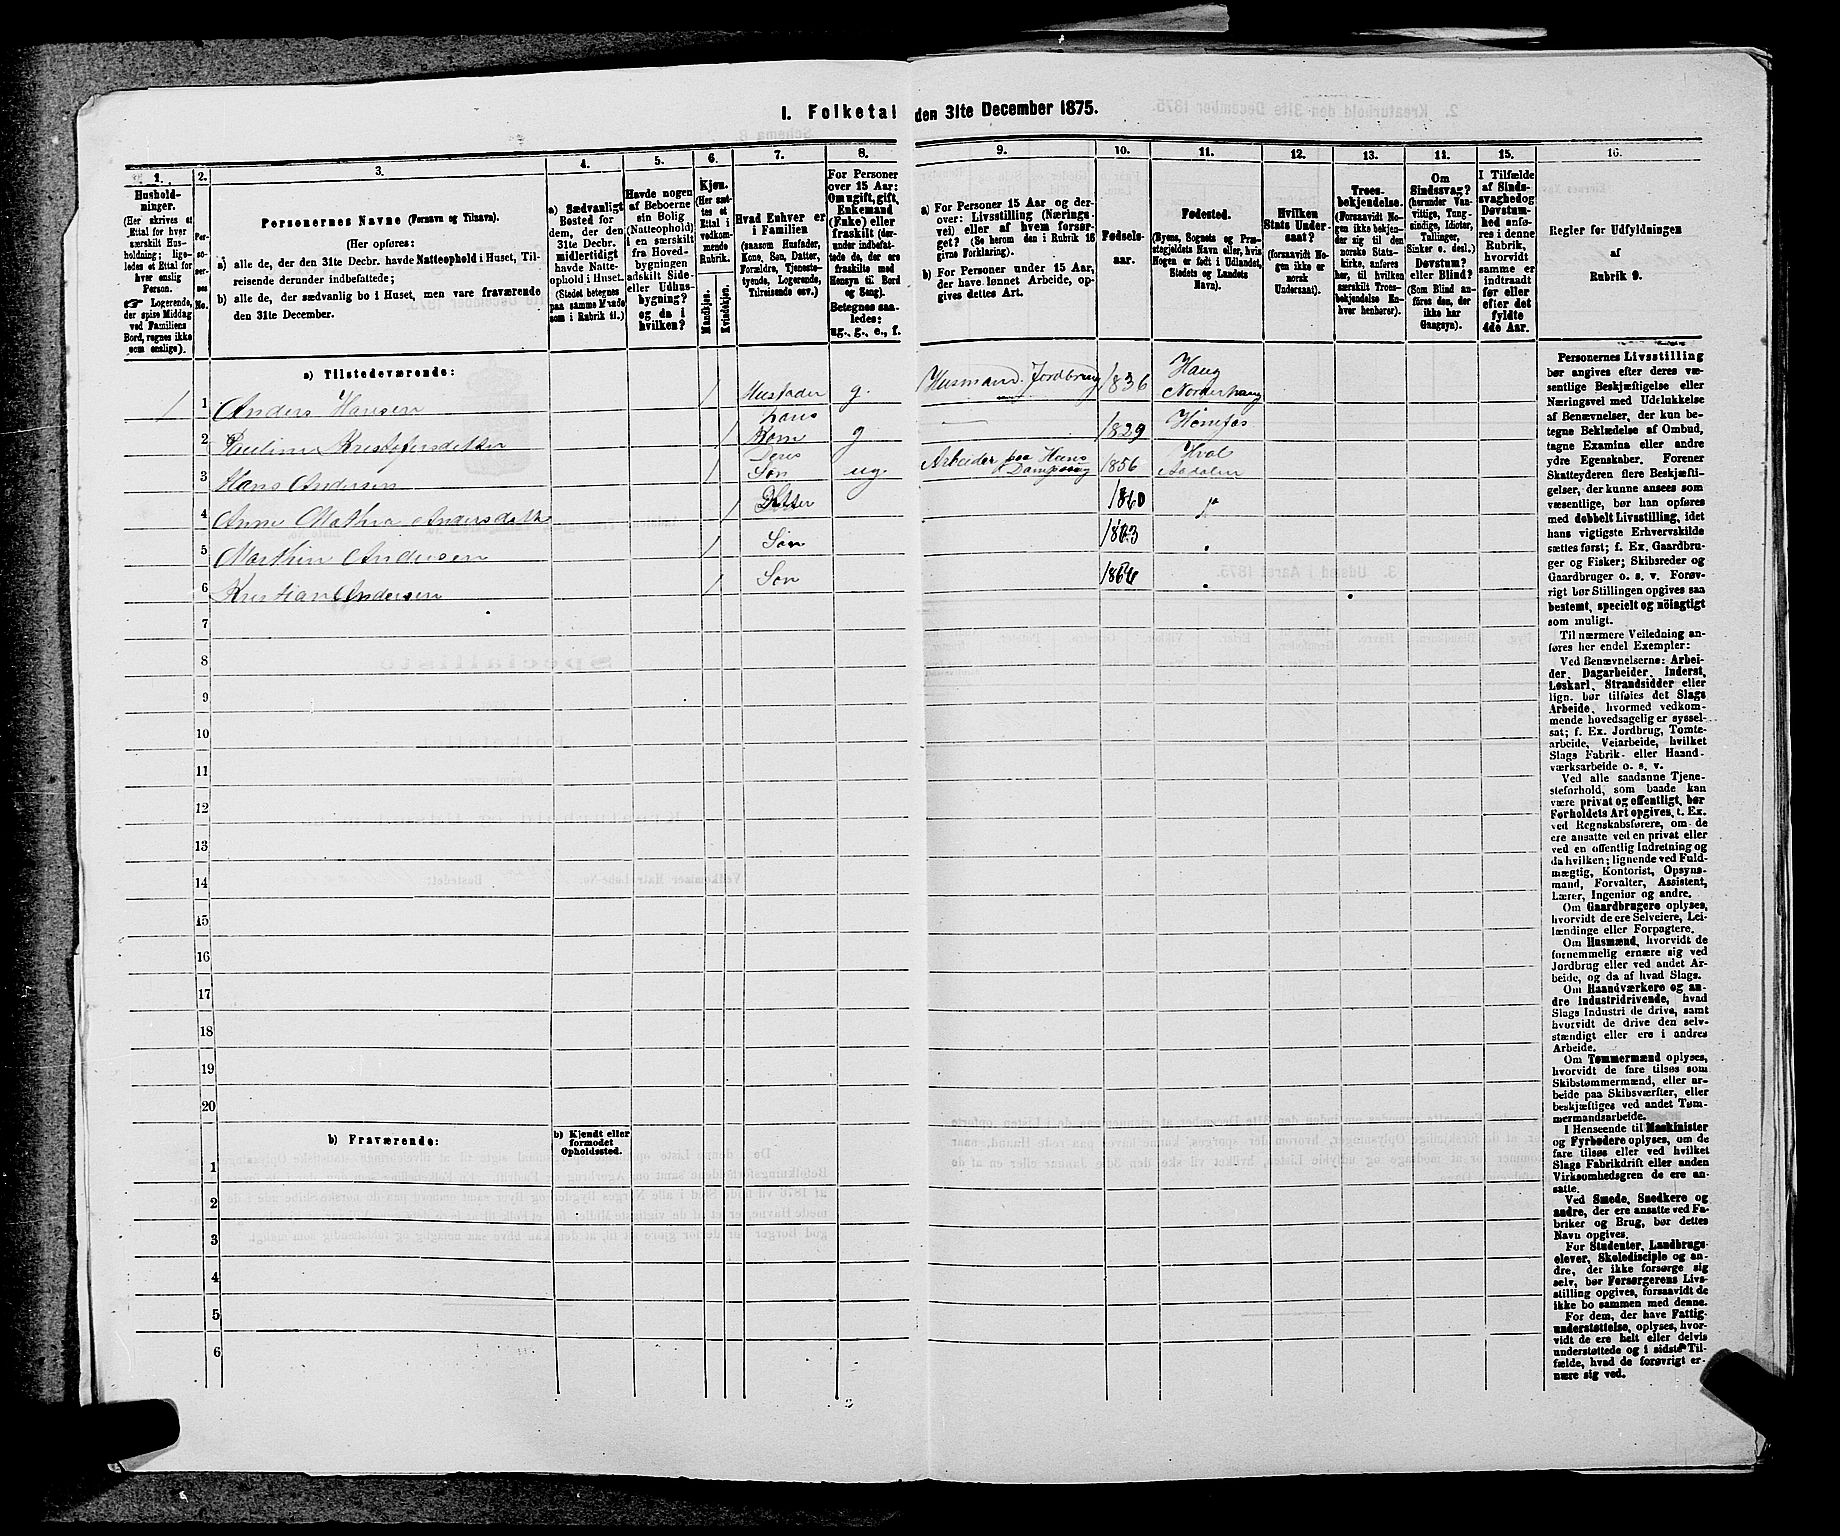 I. Folketal den 31te December 1875.
1.
Hushold-
ninger.
(Her skrives et
Ettal for hver
særskilt Hus-
holdning; lige-
ledes et Ettal for
hver enslig
Person.
☞ Logerende,
der spise Middag
ved Familiens
Bord, regnes ikke
som enslige).
2.
Per-
so-
ner-
nes
No.
3.
Personernes Navne (Fornavn og Tilnavn).
(Her opføres:
a) alle de, der den 31te Decbr. havde Natteophold i Huset, Til-
reisende derunder indbefattede;
b) alle de, der sædvanlig bo i Huset, men vare fraværende
den 31te December.
4.
a) Sædvanligt
Bosted for
dem, der den
31te Decbr.
midlertidigt
havde Natte-
ophold i Huset.
(Stedet betegnes
paa samme Maade
som i Rubrik 11.)
5.
Havde nogen
af Beboerne
sin Bolig
(Natteophold)
i en særskilt
fra Hoved-
bygningen
adskilt Side-
eller Udhus-
bygning?
og da i
hvilken?
6.
Kjøn.
(Her sæt-
tes et
Ettal i
vedkom-
mende
Rubrik.
Mandkjøn.
Kvindekjøn.
7.
Hvad Enhver er
i Familien
(saasom Husfader,
Kone, Søn, Datter,
Forældre, Tjeneste-
tyende, Logerende,
Tilreisende osv.)
8.
For Personer
over 15 Aar:
Om ugift, gift,
Enkemand
(Enke) eller
fraskilt (der-
under indbefat-
tede de, der ere
fraskilte med
Hensyn til Bord
og Seng).
Betegnes saa-
ledes:
ug., g., e., f.
9.
a) For Personer 15 Aar og der-
over: Livsstilling (Nærings-
vei) eller af hvem forsør-
get? (Se herom den i Rubrik 16
givne Forklaring).
b) For Personer under 15 Aar,
der have lønnet Arbeide, op-
gives dettes Art.
10.
Fødsels-
aar.
11.
Fødested.
(Byens, Sognets og Præ-
stegjeldets Navn eller, hvis
Nogen er født i Udlandet,
Stedets og Landets
Navn).
12.
Hvilken
Stats Under-
saat?
(forsaavidt No-
gen ikke er
norsk
Undersaat).
13.
Troes-
bekjendelse.
(Forsaavidt No-
gen ikke bekjen-
der sig til den
norske Stats-
kirke, anføres
her, til hvilken
særskilt Troes-
bekjendelse En-
hver henhører).
14.
Om
Sindssvag?
(herunder Van-
vittige, Tung-
sindige, Idioter,
Tullinger,
Sinker o. desl.)
Døvstum?
eller Blind?
(Som Blind an-
føres den, der
ikke har
Gangsyn).
15.
I Tilfælde
af Sinds-
svaghed og
Døvstum-
hed anfø-
res i denne
Rubrik,
hvorvidt
samme er
indtraadt
før eller
efter det
fyldte
4de Aar.
16.
Regler for Udfyldningen
af
Rubrik 9.
a) Tilstedeværende:
1 1 Anders Hansen 1 Husfader g. Husmand. Jordbrug 1836 Haug Norderhaug
2 Kristofersdatter 1 hans Kone g 1829 Hønefos
3 Hans Andersen 1 Søn ug Arbeider paa 1856 Aadalen
4 Anne Mathea Andersdatt 1 Datter 1860
5 Marthin Andersen 1 Søn 1863
6 Kristian Andersen 1 Søn 1866
7
8
9
10
11
12
13
14
15
16
17
18
19
20
b) Fraværende:
b) Kjendt eller
formodet
Opholdssted.
1
2
3
4
5
6
Personernes Livsstilling
bør angives efter deres væ-
sentlige Beskjæftigelse eller
Næringsvei med Udelukkelse
af Benævnelser, der kun be-
tegne Beklædelse af Ombud,
tagne Examina eller andre
ydre Egenskaber. Forener
Skatteyderen flere Beskjæfti-
gelser, der kunne ansees som
væsentlige, bør han opføres
med dobbelt Livsstilling, idet
hans vigtigste Erhvervskilde
sættes først; f. Ex. Gaardbru-
ger og Fisker; Skibsreder og
Gaardbruger o. s. v. Forøv-
rigt bør Stillingen opgives saa
bestemt, specielt og nöiagtigt
som muligt.
Til nærmere Veiledning an-
føres her endel Exempler:
Ved Benævnelserne: Arbei-
der, Dagarbeider, Inderst,
Løskarl, Strandsidder eller
lign. bør tilføies det Slags
Arbeide, hvormed vedkom-
mende hovedsagelig er syssel-
sat; f. Ex. Jordbrug, Tomte-
arbeide, Veiarbeide, hvilket
Slags Fabrik- eller Haand-
værksarbeide o. s. v.
Ved alle saadanne Tjene-
steforhold, som baade kan
være privat og offentligt, bør
Forholdets Art opgives, t. Ex.
ved Regnskabsførere, om de
ere ansatte ved en privat eller
ved en offentlig Indretning og
da hvilken; lignende ved Fuld-
mægtig, Kontorist, Opsyns-
mand, Forvalter, Assistent,
Lærer, Ingeniør og andre.
Om Gaardbrugere oplyses,
hvorvidt de ere Selveiere, Lei-
lændinge eller Forpagtere.
Om Husmænd, hvorvidt de
fornemmelig ernære sig ved
Jordbrug eller ved andet Ar-
beide, og da af hvad Slags.
Om Haandværkere og an-
dre industridrivende, hvad
Slags Industri de drive, samt
hvorvidt de drive den selv-
stændigt eller ere i andres
Arbeide.
Om Tømmermænd oplyses,
hvorvidt de fare tilsøs som
Skibstømmermænd, eller ar-
beide paa Skibsværfter, eller
beskjæftiges ved andet Tøm-
mermandsarbeide.
I Henseende til Maskinister
og Fyrbødere oplyses, om de
fare tilsøs eller ved hvilket
Slags Fabrikdrift eller anden
Virksomhedsgren de ere an-
satte.
Ved Smede, Snedkere og
andre, der ere ansatte ved Fa-
briker og Brug, bør dettes
Navn opgives.
For Studenter, Landbrugs-
elever, Skoledisciple og an-
dre, der ikke forsørge sig
selv, bør Forsørgerens Livs-
stilling opgives, forsaavidt de
ikke bo sammen med denne.
For dem, der have Fattig-
understøttelse, oplyses, hvor-
vidt de ere helt eller delvis
understøttede og i sidste Til-
fælde, hvad de forøvrigt er-
nære sig ved.